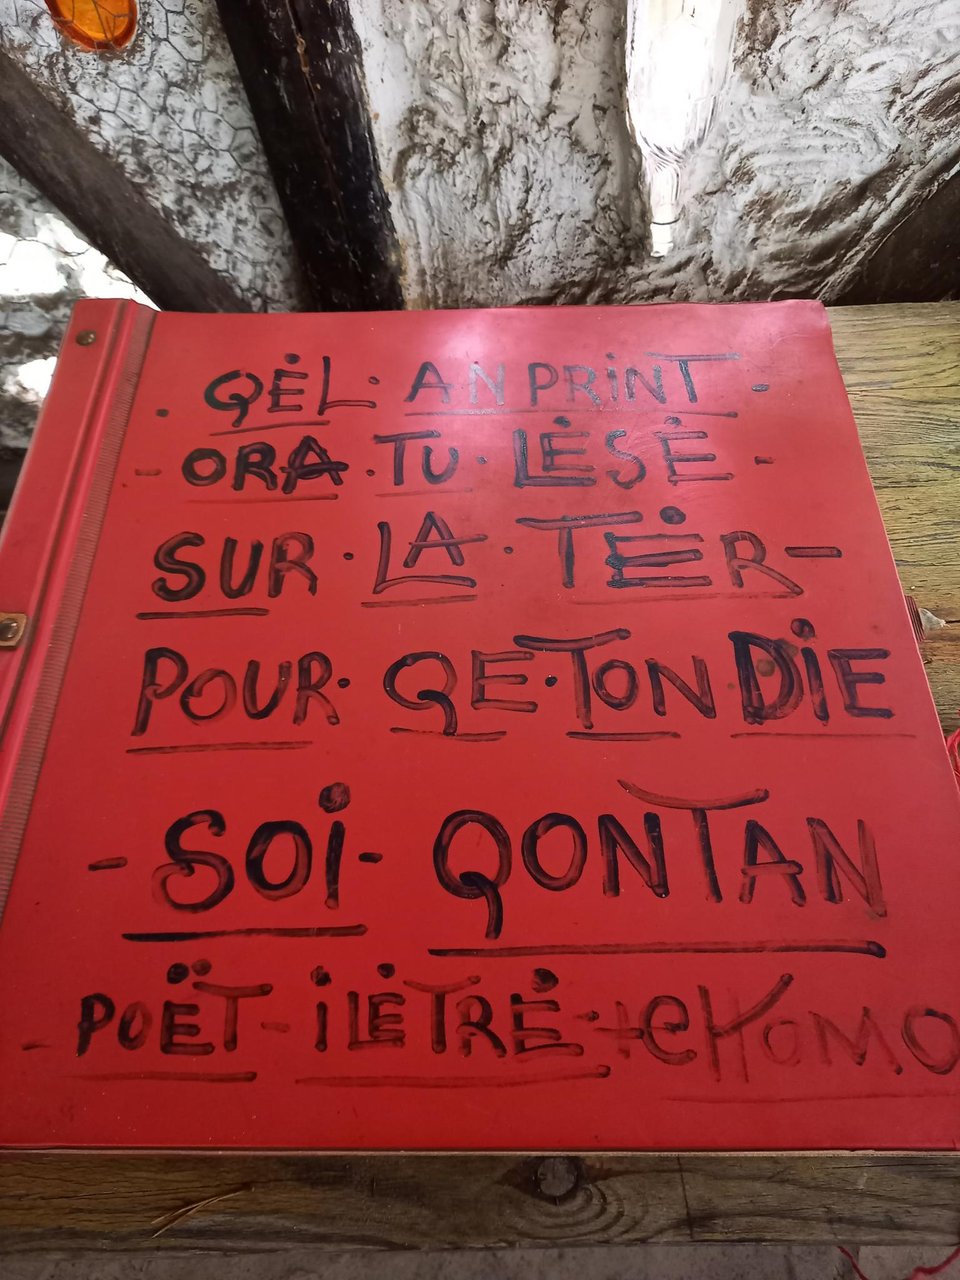 . QĖL · AN PRINT -
- ORA · TU · LĖSĖ -
SUR · LA · TĖR -
POUR · QE · TON DIE
- SOI - QONTAN
- POËT - iLĖTRĖ - + CHOMO